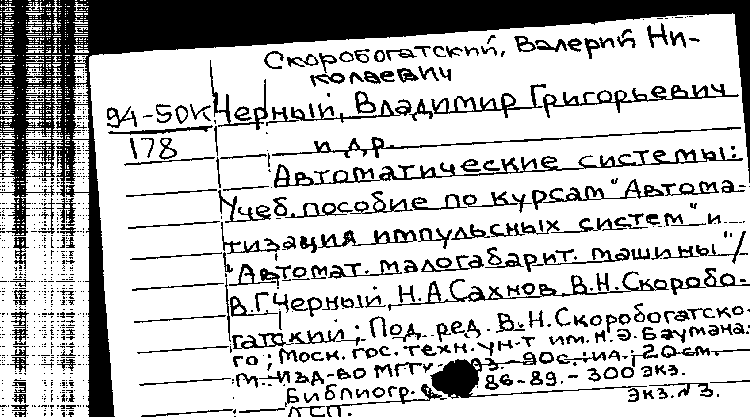 Скоробогатский, Валерий Ни-
колаевич
94-50К Черный, Владимир Григорьевич
178 и др.
Автоматические системы:
Учеб. пособие по курсам "Автома-
тизация импульсных систем" и
"Автомат. малогабарит. машины"/
В.Г. Черный, Н.А. Сахнов, В.Н. Скоробо-
гатский; Под ред. В.Н. Скоробогатско-
го; Моск. гос. техн. ун-т им. Н.Э. Баумана.-
М.: Изд-во МГТУ, 93.-90с.: ил.; 20 см.
Библиогр. 86-89.- 300 экз.
ДСП. экз. N 3.